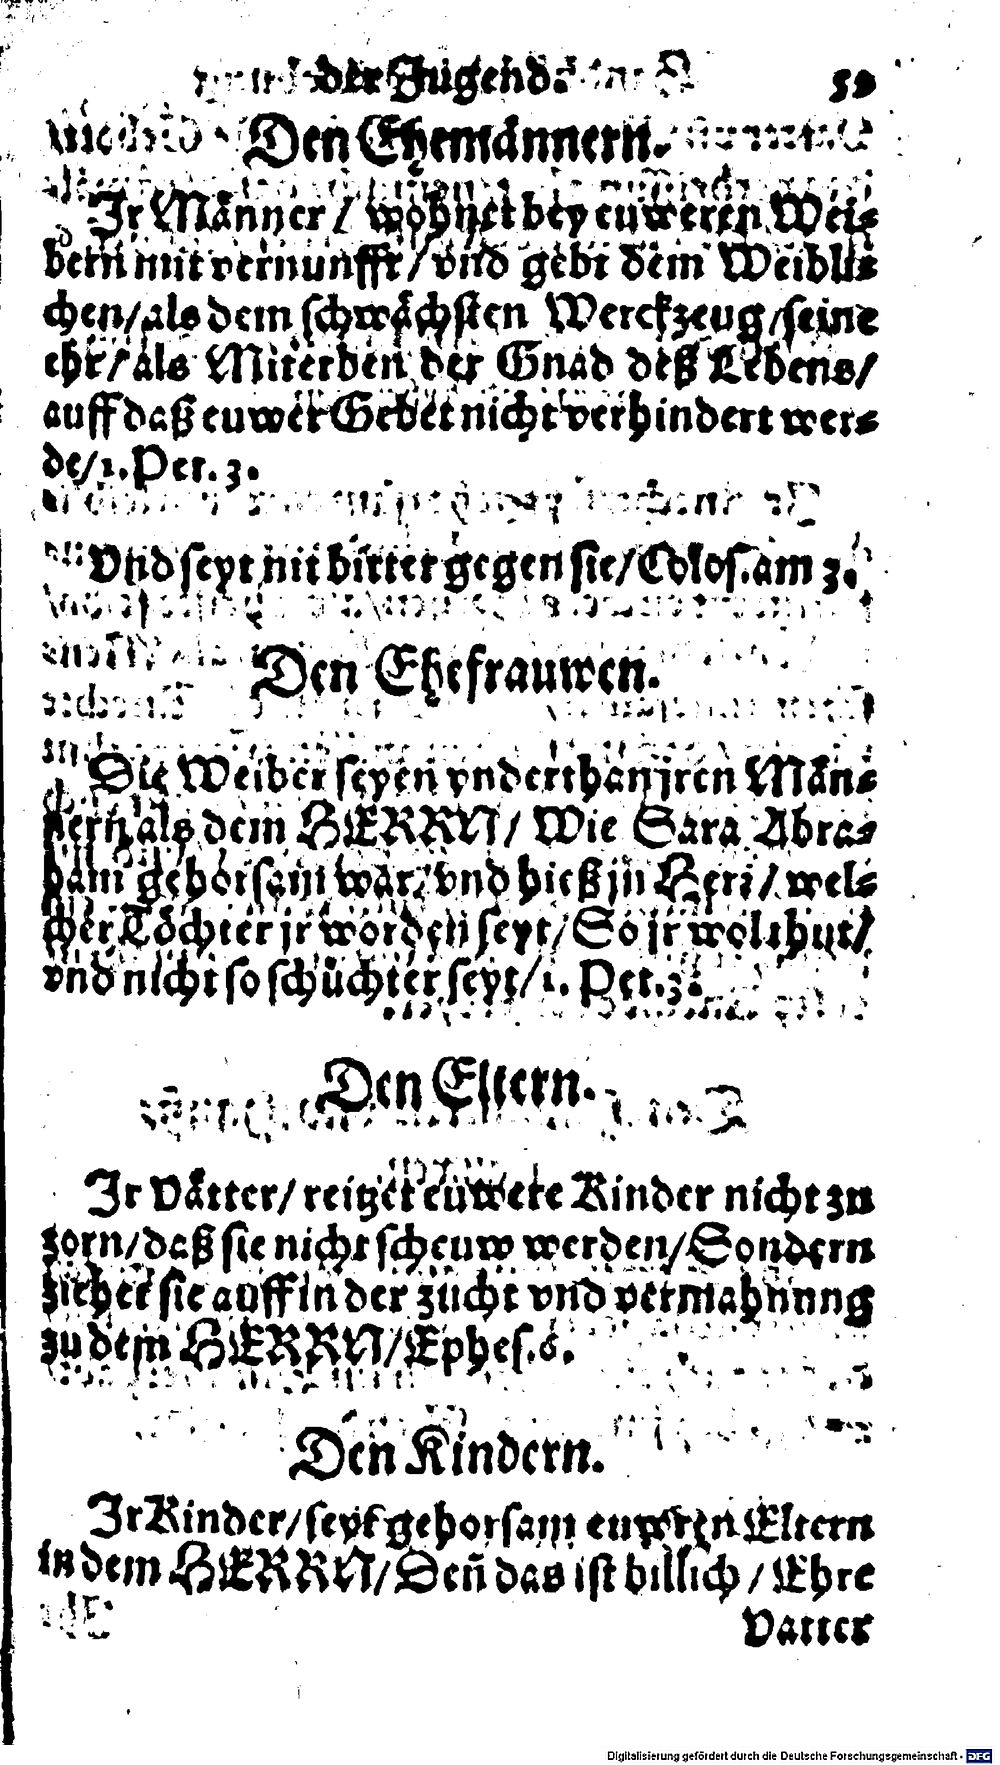 der Jugend. 59
Den Ehemännern.
Jr Männer/ wohnet bey euweren Wei⸗
bern mit vernunfft/ vnd gebt dem Weibli⸗
chen/ als dem schwächsten Werckzeug/ seine
ehr/ als Miterben der Gnad deß Lebens/
auff daß euwer Gebet nicht verhindert wer⸗
de/ 1. Pet. 3.
Vnd seyt nit bitter gegen sie/ Colos. am 3.
Den Ehefrauwen.
Die Weiber seyen vnderthan jren Män⸗
nern als dem HERRN/ Wie Sara Abra⸗
ham gehorsam war/ vnd hieß jn Herr/ wel⸗
cher Töchter jr worden seyt/ So jr wol thut/
vnd nicht so schüchter seyt/ 1. Pet. 3.
Den Eltern.
Jr Vätter/ reitzet euwere Kinder nicht zu
zorn/ daß sie nicht scheuw werden/ Sondern
ziehet sie auff in der zucht vnd vermahnung
zu dem HERRN/ Ephes. 6.
Den Kindern.
Jr Kinder/ seyt gehorsam euwren Eltern
in dem HERRN/ Deñ das ist billich/ Ehre
Vatter
Digitalisierung gefördert durch die Deutsche Forschungsgemeinschaft - DFG